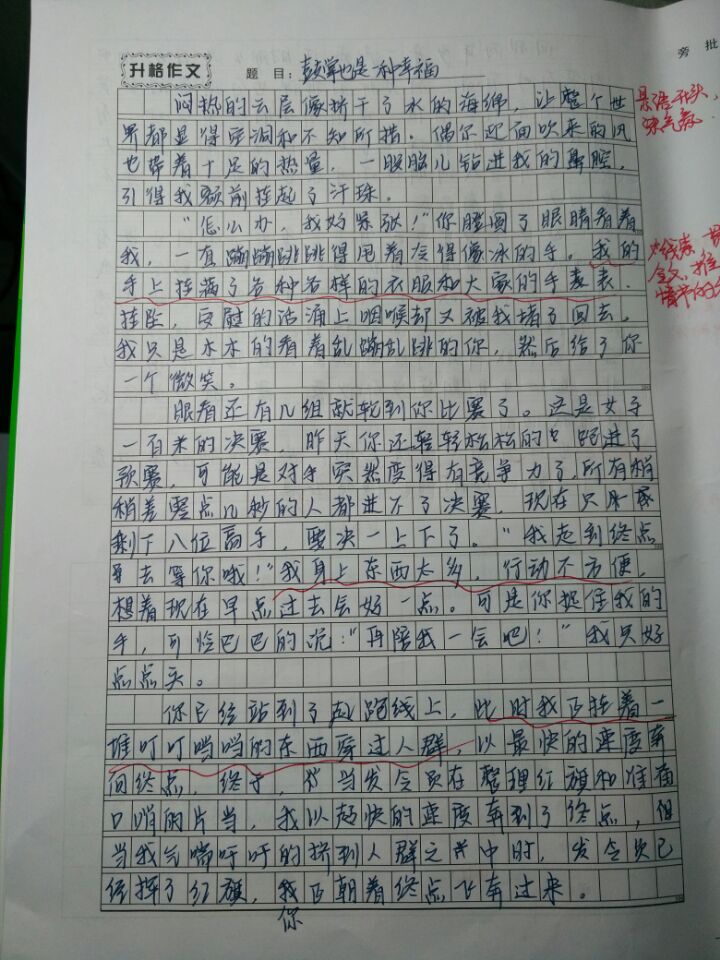 旁批
升格作文
题目：鼓掌也是一种幸福
闷热的云层像挤干了水的海绵，让整个世
界都显得空洞和不知所措。偶尔迎面吹来的风
也带着十足的热量，一股脑儿钻进我的鼻腔，
引得我额前挂起了汗珠。
“怎么办，我好紧张！”你瞪圆了眼睛看着
我，一直蹦蹦跳跳得甩着冷得像冰的手。我的
手上挂满了各种各样的衣服和大家的手表，
挂坠，安慰的话涌上咽喉却又被我堵了回去。
我只是木木的看着乱蹦乱跳的你，然后给了你
一个微笑。
眼看还有几组就轮到你比赛了。这是女子
一百米的决赛，昨天你还轻轻松松的跑进了
预赛，可能是对手突然变得有竞争力了，所有稍
稍差零点几秒的人都进不了决赛，现在只
剩下八位高手，要决一上下了。“我走到终点
去等你哦！”我身上东西太多，行动不方便，
想着现在早点过去会好一点。可是你捉住我的
手，可怜巴巴的说：“再陪我一会吧！”我只好
点点头。
你已经站到了起跑线上，此时我正挂着一
堆叮叮当当的东西穿过人群，以最快的速度奔
向终点，终于，当发令员在整理红旗和准备
口哨的片当，我以超快的速度奔到了终点，但
当我气喘吁吁的挤到人群之中时，发令员已
经挥了红旗，你正朝着终点飞奔过来。
景语开头，